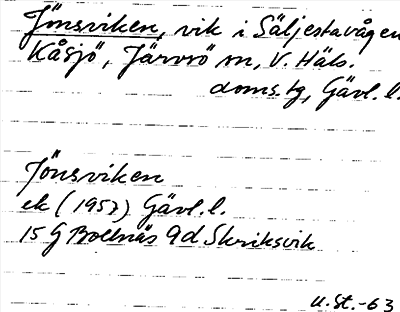 Jönsviken, vik i Säljestavågen
Kåsjö, Järvsö sn, V. Häls.
doms.tg, Gävl.l.
Jönsviken
ek (1957) Gävl.l.
15 G Bollnäs 9d Skriksvik
U.St.-63